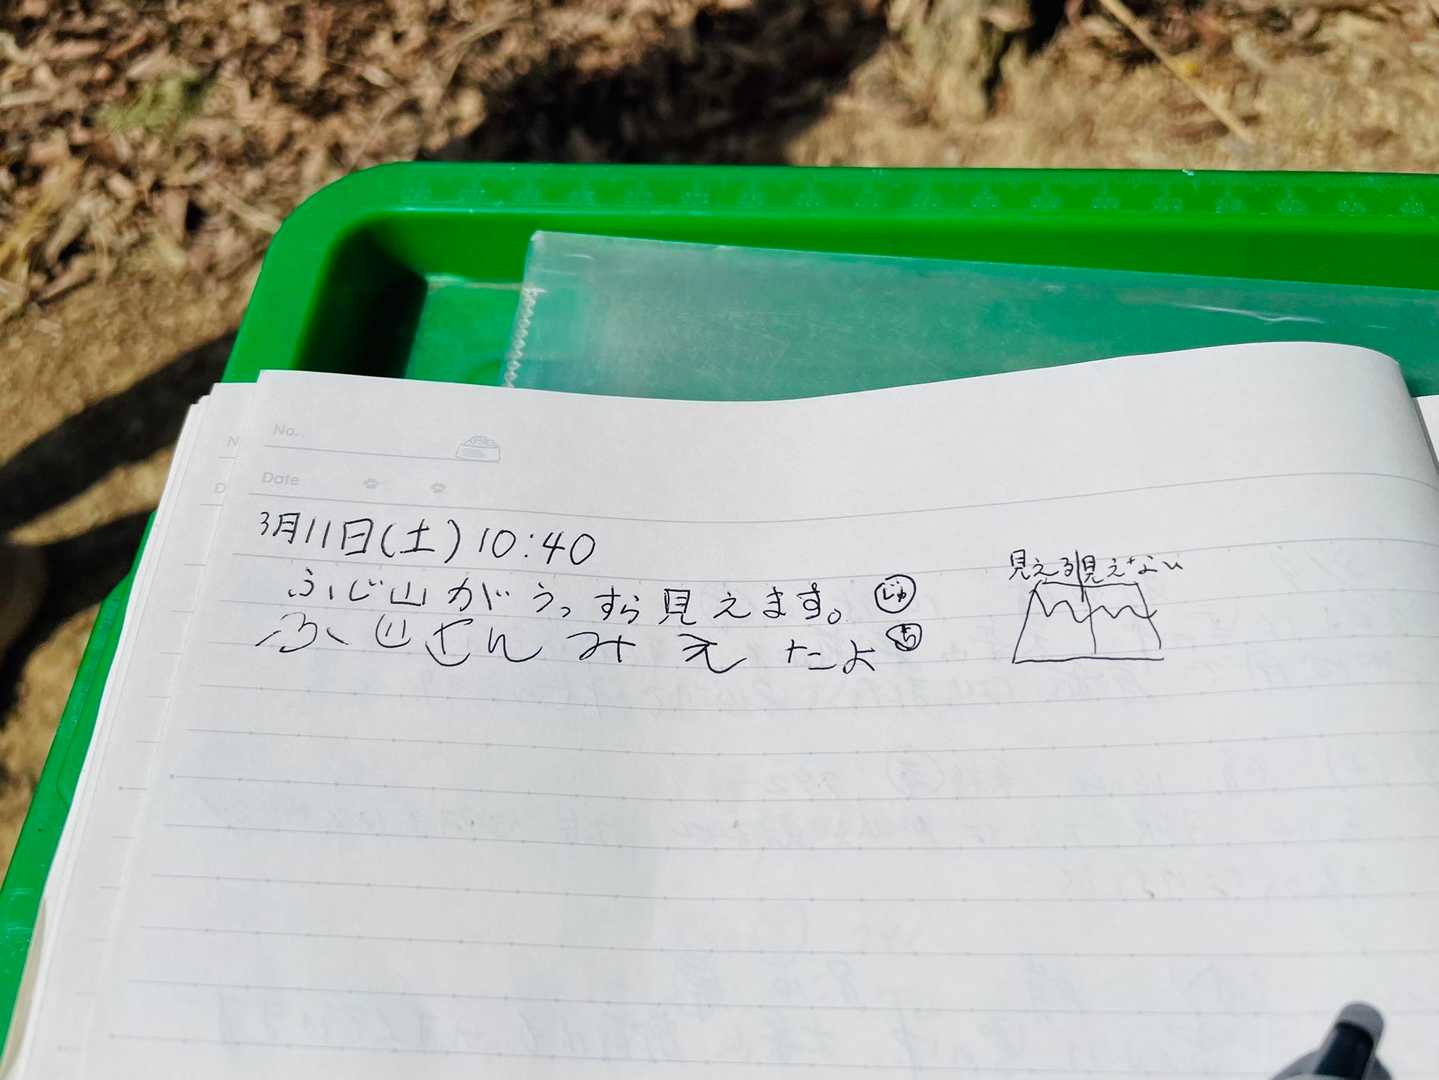 No.
Date
3月11日(土)10:40
ふじ山がうっすら見えます。じゅ
ふじさんみえたよ ち
見える 見えない